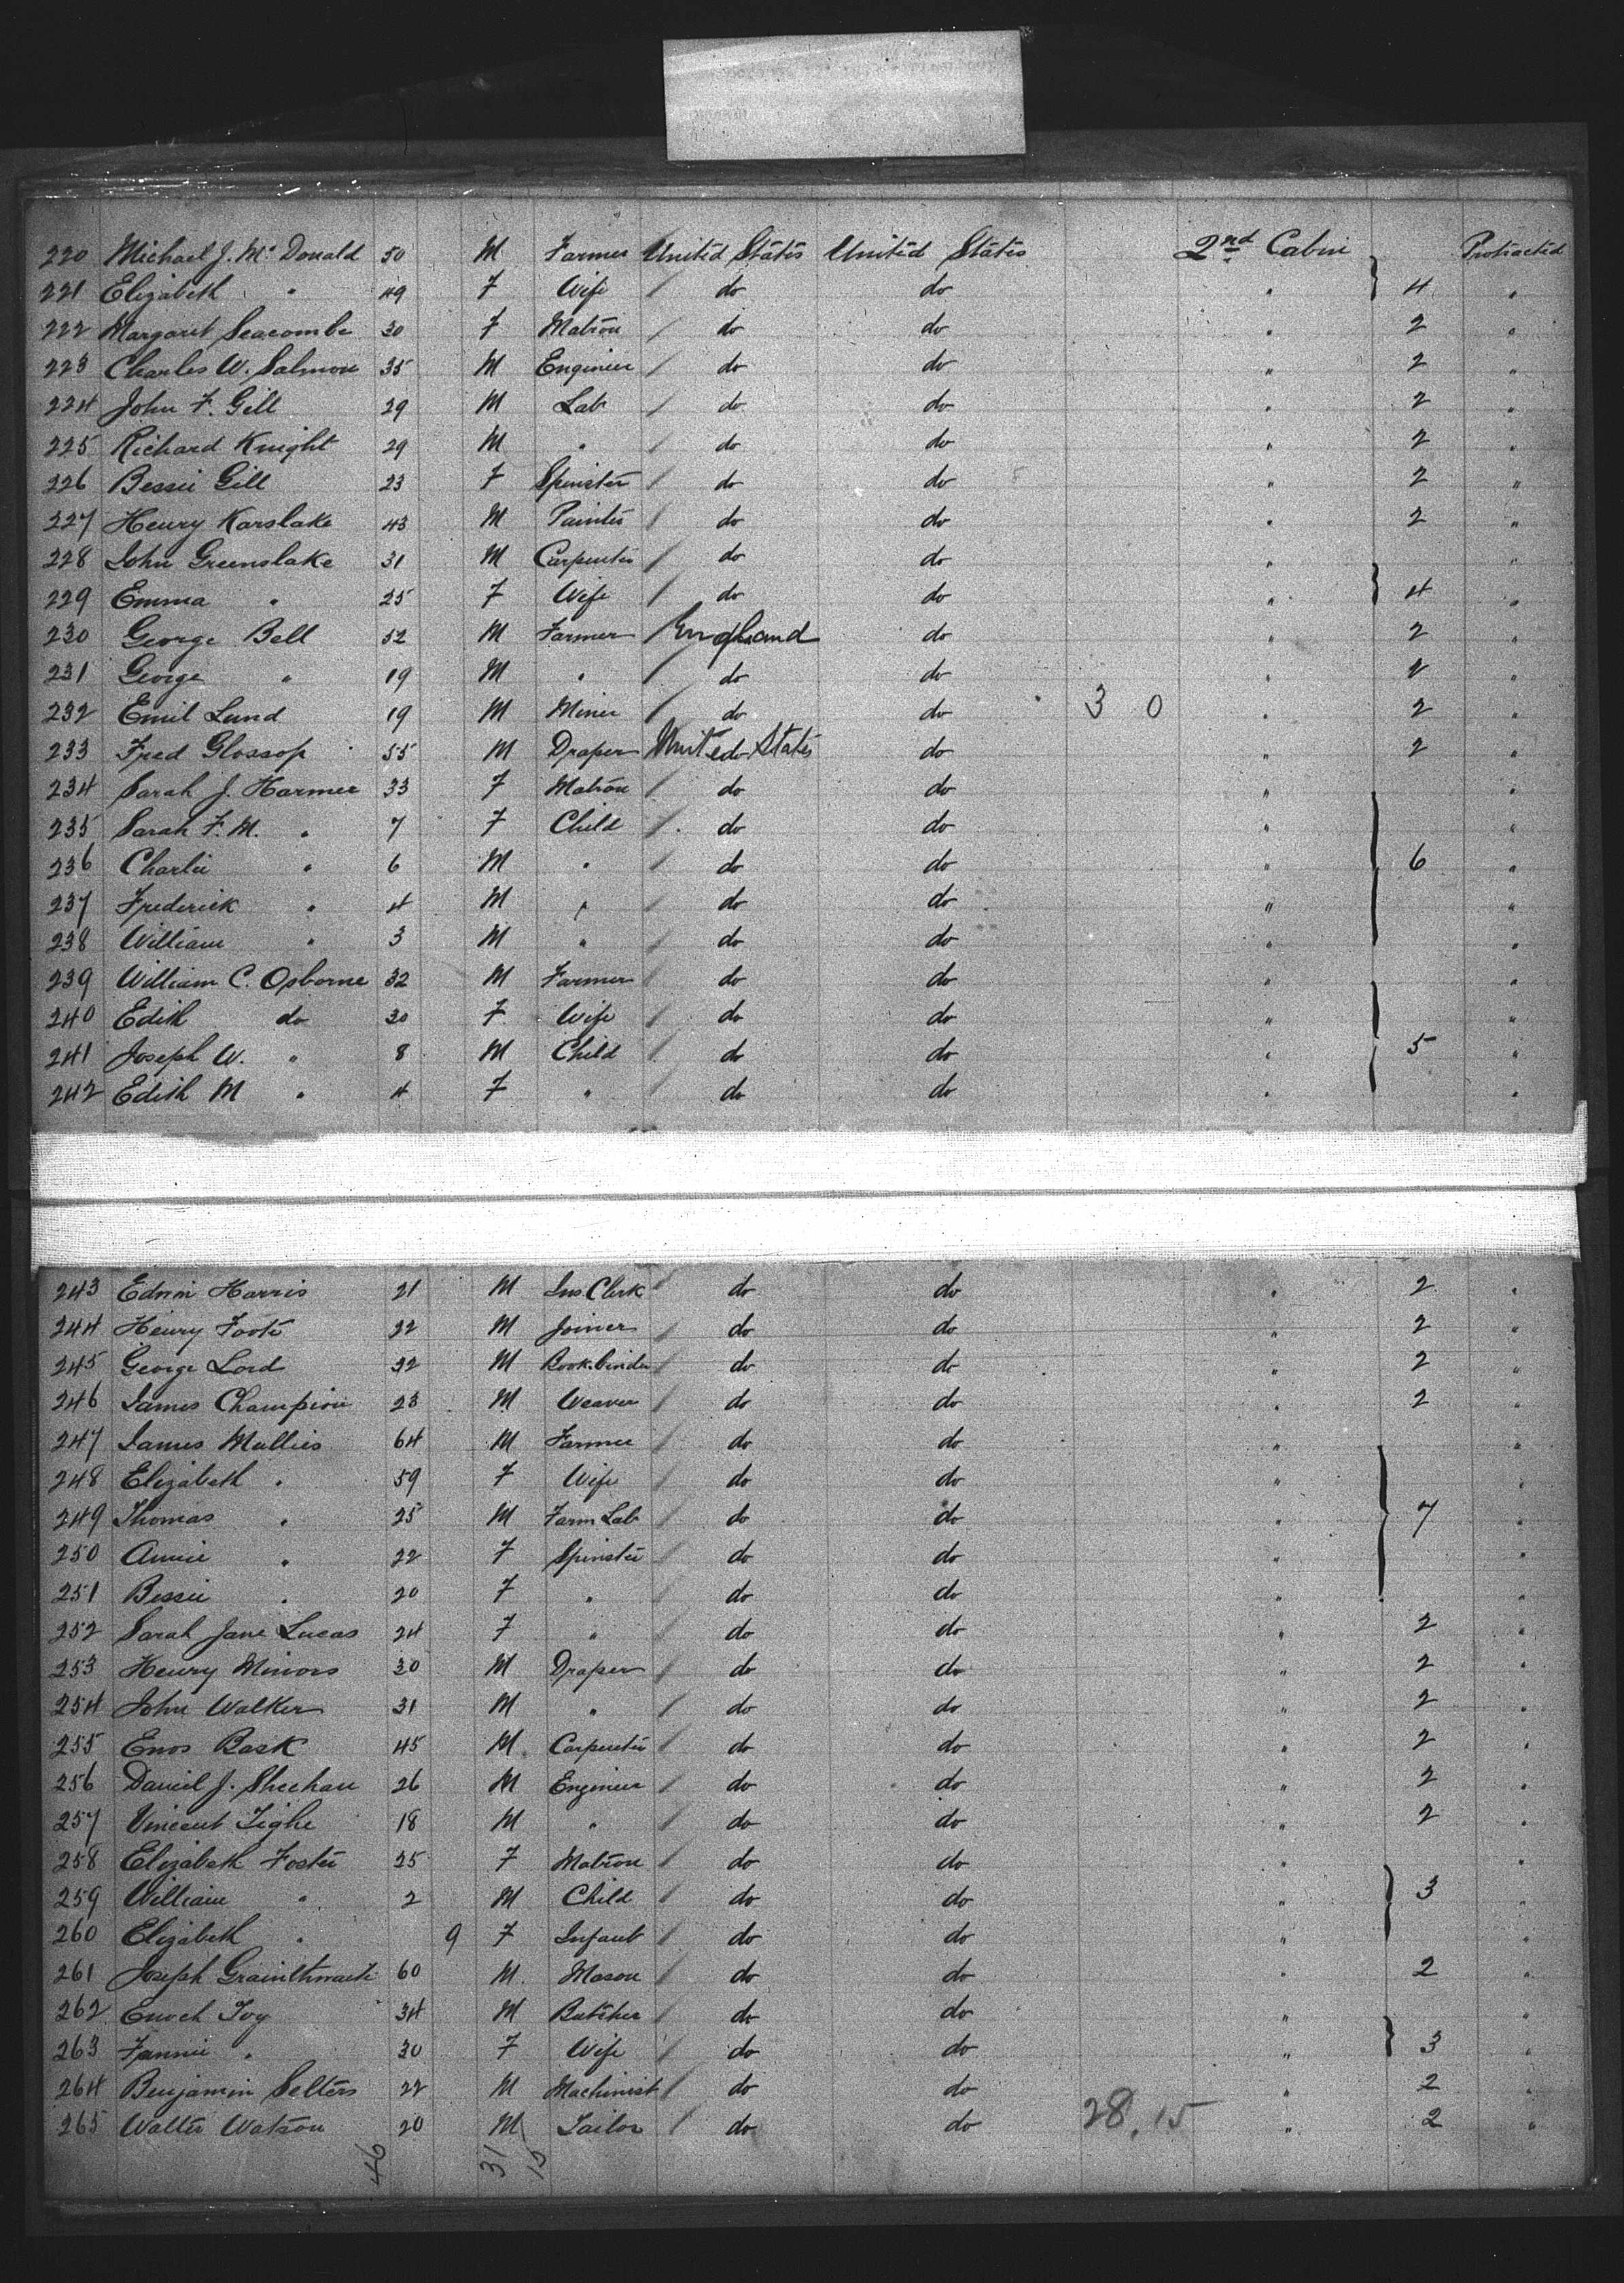 220 Michael J. Mc Donald 50 M Farmer United States United States 2nd Cabin Protracted
221 Elizabeth " 49 F Wife do do " 4 "
222 Margaret Seacombe 30 F Matron do do " 2 "
223 Charles W. Salmon 35 M Engineer do do " 2 "
224 John F. Gill 29 M Lab do do " 2 "
225 Richard Knight 29 M " do do " 2 "
226 Bessie Gill 23 F Spinster do do " 2 "
227 Henry Karslake 43 M Painter do do " 2 "
228 John Greenslake 31 M Carpenter do do " "
229 Emma " 25 F Wife do do " 4 "
230 George Bell 52 M Farmer England do " 2 "
231 George " 19 M " do do " 2 "
232 Emil Lund 19 M Miner do do 3 0 " 2 "
233 Fred Glossop 55 M Draper United States do " 2 "
234 Sarah J. Harmer 33 F Matron do do " "
235 Sarah F. M. " 7 F Child do do " "
236 Charlie " 6 M " do do " 6 "
237 Frederick " 4 M " do do " "
238 William " 3 M " do do " "
239 William C. Osborne 32 M Farmer do do " "
240 Edith do 30 F Wife do do " "
241 Joseph W. " 8 M Child do do " 5 "
242 Edith M " 4 F " do do " "
243 Edwin Harris 21 M Ins. Clerk do do " 2 "
244 Henry Foote 22 M Joiner do do " 2 "
245 George Lord 32 M Book.binder do do " 2 "
246 James Champion 23 M Weaver do do " 2 "
247 James Mullies 64 M Farmer do do " "
248 Elizabeth " 59 F Wife do do " "
249 Thomas " 25 M Farm Lab do do " 7 "
250 Annie " 22 F Spinster do do " "
251 Bessie " 20 F " do do " "
252 Sarah Jane Lucas 24 F " do do " 2 "
253 Henry Minors 30 M Draper do do " 2 "
254 John Walker 31 M " do do " 2 "
255 Enos Bask 45 M Carpenter do do " 2 "
256 Daniel J. Sheehan 26 M Engineer do do " 2 "
257 Vincent Tighe 18 M " do do " 2 "
258 Elizabeth Foster 25 F Matron do do " "
259 William " 2 M Child do do " 3 "
260 Elizabeth " 9 F Infant do do " "
261 Joseph Grainthwaite 60 M Mason do do " 2 "
262 Enoch Ivy 34 M Butcher do do " "
263 Fannie " 30 F Wife do do " 3 "
264 Benjamin Selters 22 M Machinist do do " 2 "
265 Walter Watson 20 M Tailor do do 28.15 " 2 "
46 31 15